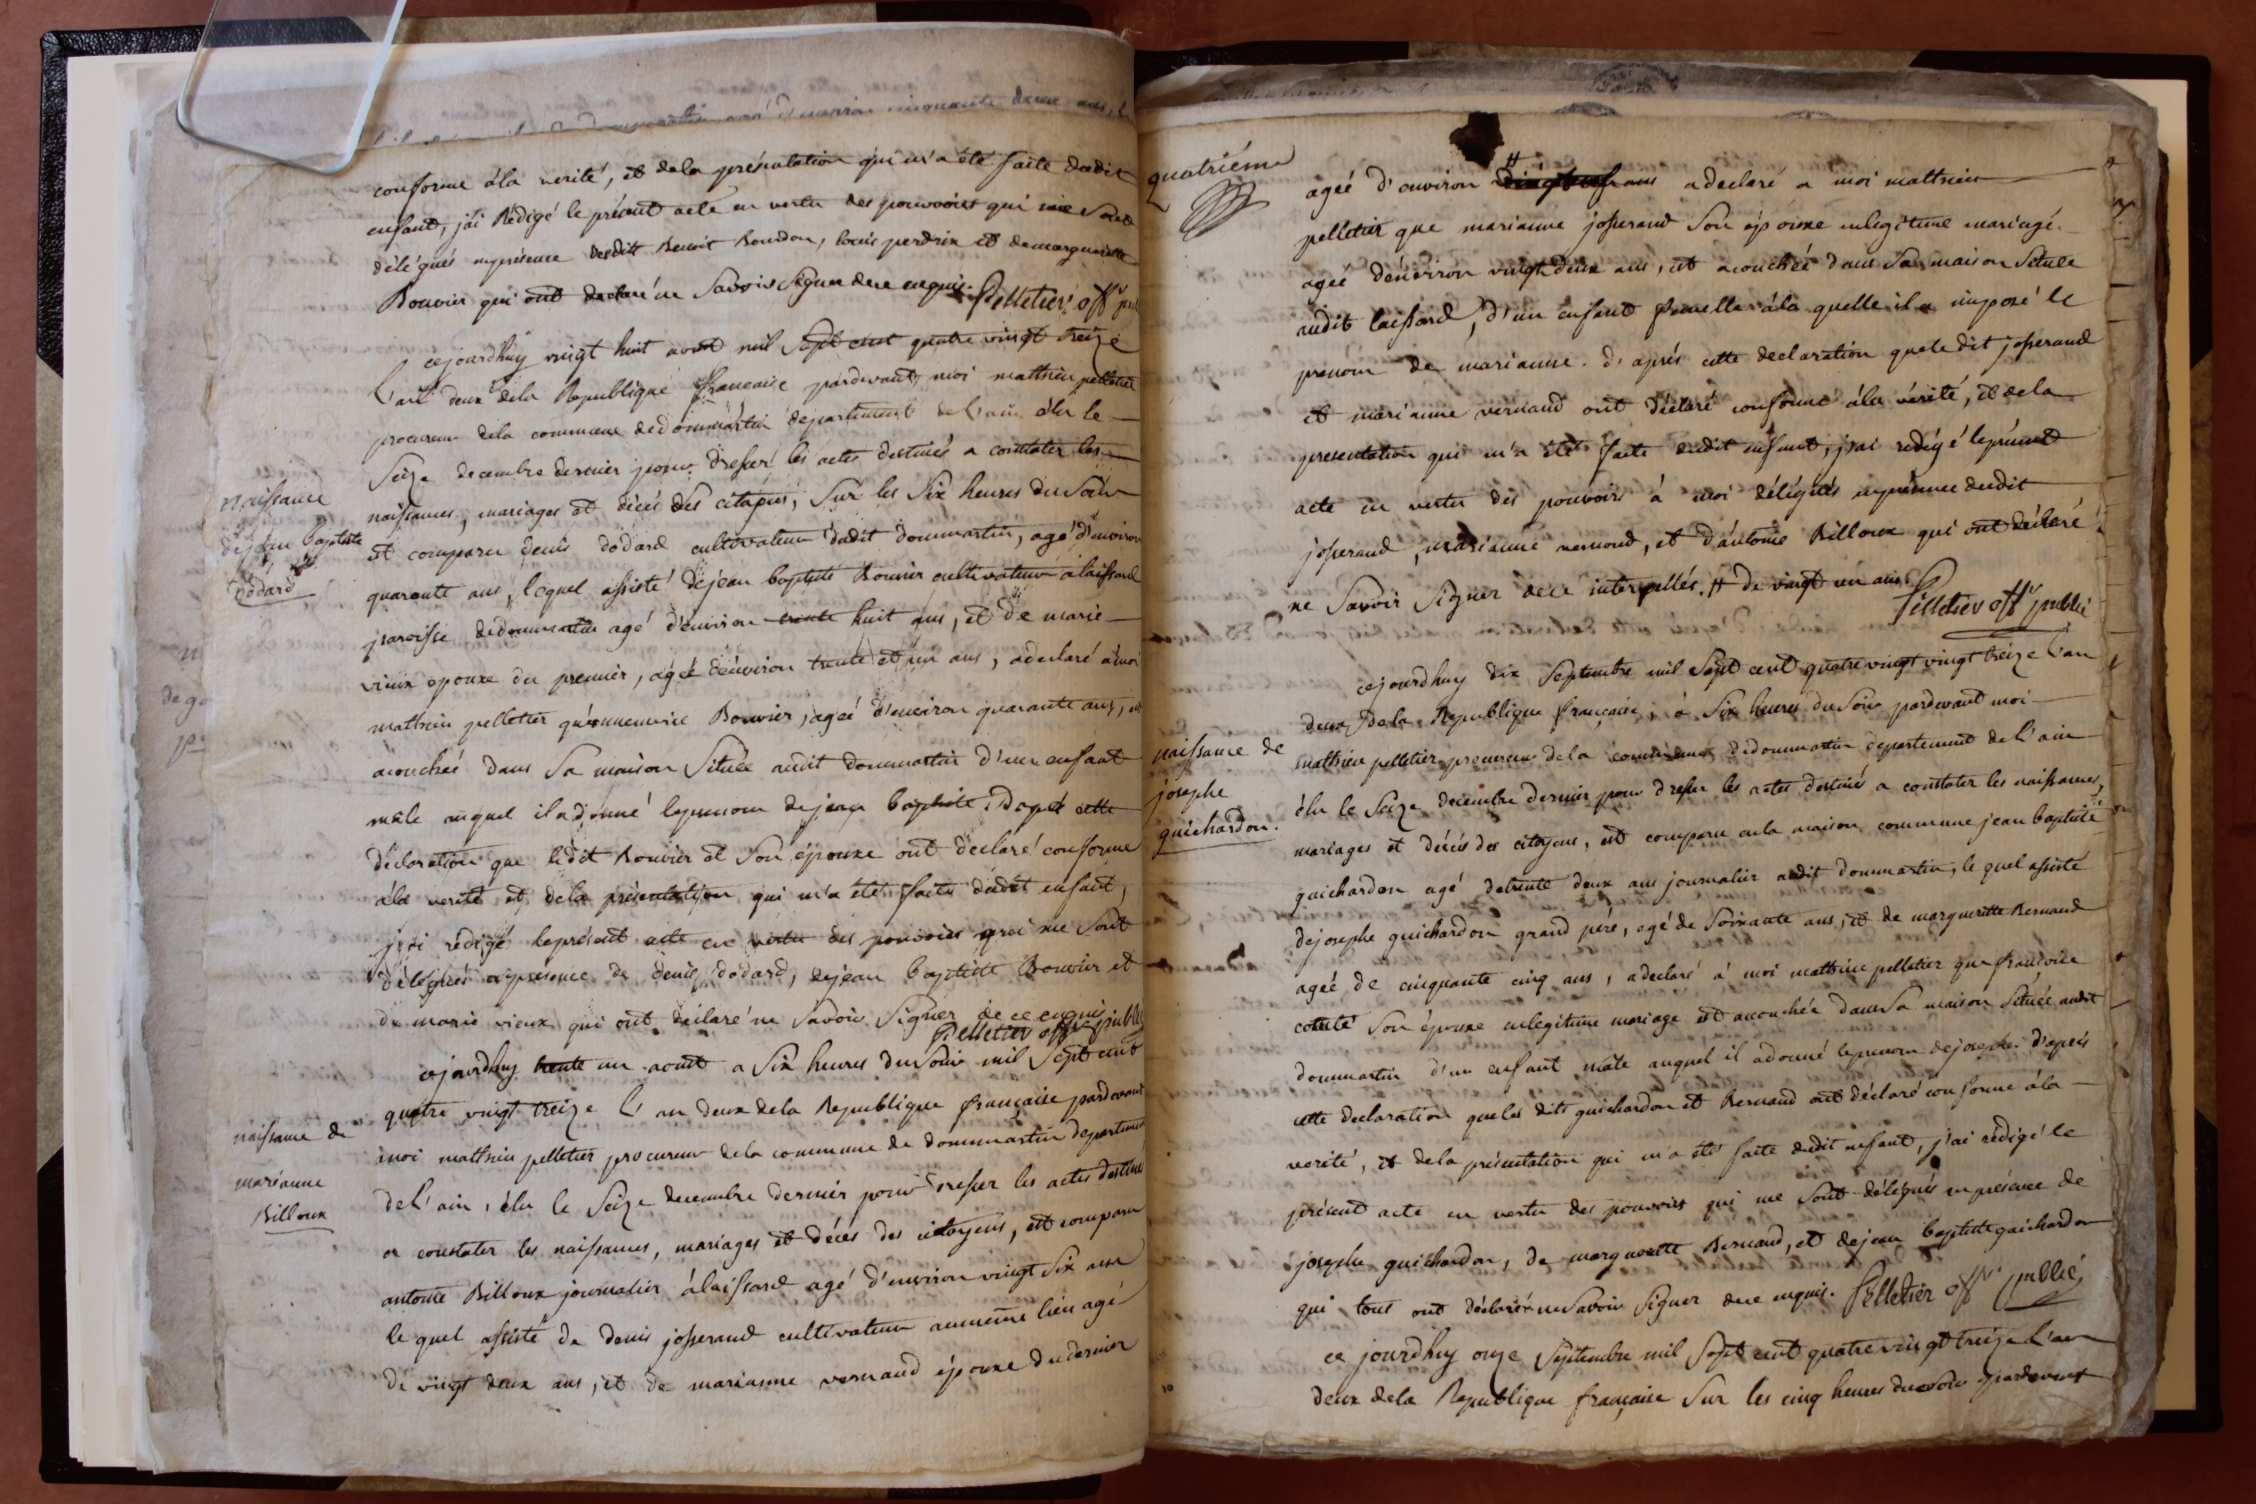 conforme à la verité, et de la présentation qui m'a été faite dudit
enfant, j'ai Rédigé le présent acte en vertu des pouvoirs qui me sont
délégués en présence desdits Benoit Bondon, louis perdrix et de marguerite
Bouvier qui ont declaré ne Savoir Signer de ce enquis. Pelletier offr
cejourdhuy vingt huit aoust mil Sept cent quatre vingt treize
L'an deux de la Republique francaise pardevant moi matthieu pelletier
procureur de la commune de dommartin departement de l'ain élu le
Seize decembre dernier pour dresser les actes destinés a constater les
naissance
de jean baptiste
dodard
naissances, mariages et décés des citoyens, Sur les Six heures du Soir
est comparu denis dodard cultivateur dudit dommartin, agé d'environ
quarante ans, lequel assisté de jean baptiste Bouvier cultivateur a laissard
paroisse de dommartin agé d'environ trente huit ans, et de marie
vieux epouse du premier, agée d'environ trente et un ans, a declaré à moi
matthieu pelletier qu'annemarie Bouvier, agée d'environ quarante ans, est
acouchée dans Sa maison Située audit dommartin d'un enfant
mâle auquel il a donné le prenom de jean baptiste. D'après cette
déclaration que ledit Bouvier et Son épouse ont declaré conforme
à la verité et de la présentation qui m'a été faite dudit enfant,
j'ai rédigé le présent acte en vertu des pouvoirs qui me Sont
délégués en présence de denis dodard, de jean baptiste Bouvier et
de marie vieux qui ont declaré ne Savoir Signer de ce enquis
Pelletier offr public
cejourdhuy trente un aoust a Six heures du Soir mil Sept cent
quatre vingt treize L'an deux de la Republique française pardevant
naissance de
marianne
Billoux
moi matthieu pelletier procureur de la commune de dommartin departement
de l'ain, élu le Seize decembre dernier pour dresser les actes destinés
a constater les naissances, mariages et décés des citoyens, est comparu
antoine Billoux journalier à laissard agé d'environ vingt Six ans
le quel assisté de denis josserand cultivateur au même lieu agé
de vingt deux ans, et de marianne vernaud épouse du dernier
quatriéme
ageé d'environ # ans a declaré a moi matthieu
pelletier que marianne josserand Son épouse en legitime mariage
ageé d'environ vingt deux ans, est acouchée dans Sa maison Située
audit laissard, d'un enfant femelle à la quelle il a imposé le
prenom de marianne. d'aprés cette declaration que le dit josserand
et marianne vernaud ont déclaré conforme à la vérité, et de la
presentation qui m'a été faite dudit enfant, j'ai redigé le présent
acte en vertu des pouvoirs à moi délégués en présence dudit
josserand, marianne vernaud, et d'antoine Billoux qui ont déclaré
ne Savoir Signer de ce interpellés. # De vingt un ans.
Pelletier offr public
cejourdhuy dix Septembre mil Sept cent quatre vingt vingt treize L'an
deux De la Republique française, à Six heures du Soir pardevant moi
naissance de
josephe
guichardon.
matthieu pelletier procureur de la commune de dommartin departement de l'ain
élu le Seize decembre dernier pour dresser les actes destinés a constater les naissances,
mariages et décés des citoyens, est comparu en la maison commune jean baptiste
guichardon agé de trente deux ans journalier audit dommartin, le quel assisté
de josephe guichardon grand pére, agé de Soixante ans, et de marguerite Bernaud
ageé de cinquante cinq ans, a declaré à moi matthieu pelletier que françoise
Son épouse en legitime mariage est acouchée dans Sa maison Située audit
dommartin d'un enfant mâle auquel il a donné le prenom de josephe. d'aprés
cette declaration que les dits guichardon et Bernaud ont déclaré conforme à la
verité, et de la présentation qui m'a été faite dudit enfant, j'ai rédigé le
présent acte en vertu des pouvoirs qui me Sont délégués en présence de
josephe guichardon, de marguerite Bernaud, et de jean baptiste guichardon
qui tous ont déclaré ne Savoir Signer de ce enquis. Pelletier offr public
ce jourdhuy onze Septembre mil Sept cent quatre vingt treize L'an
deux de la Republique française Sur les cinq heures du Soir pardevant